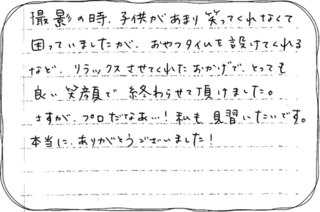 撮影の時、子供があまり笑ってくれなくて
困っていましたが、おやつタイムを設けてくれる
など、リラックスさせてくれたおかげで、とっても
良い笑顔で終わらせて頂けました。
さすが、プロだなあい!私も見習いたいです。
本当に、ありがとうございました!